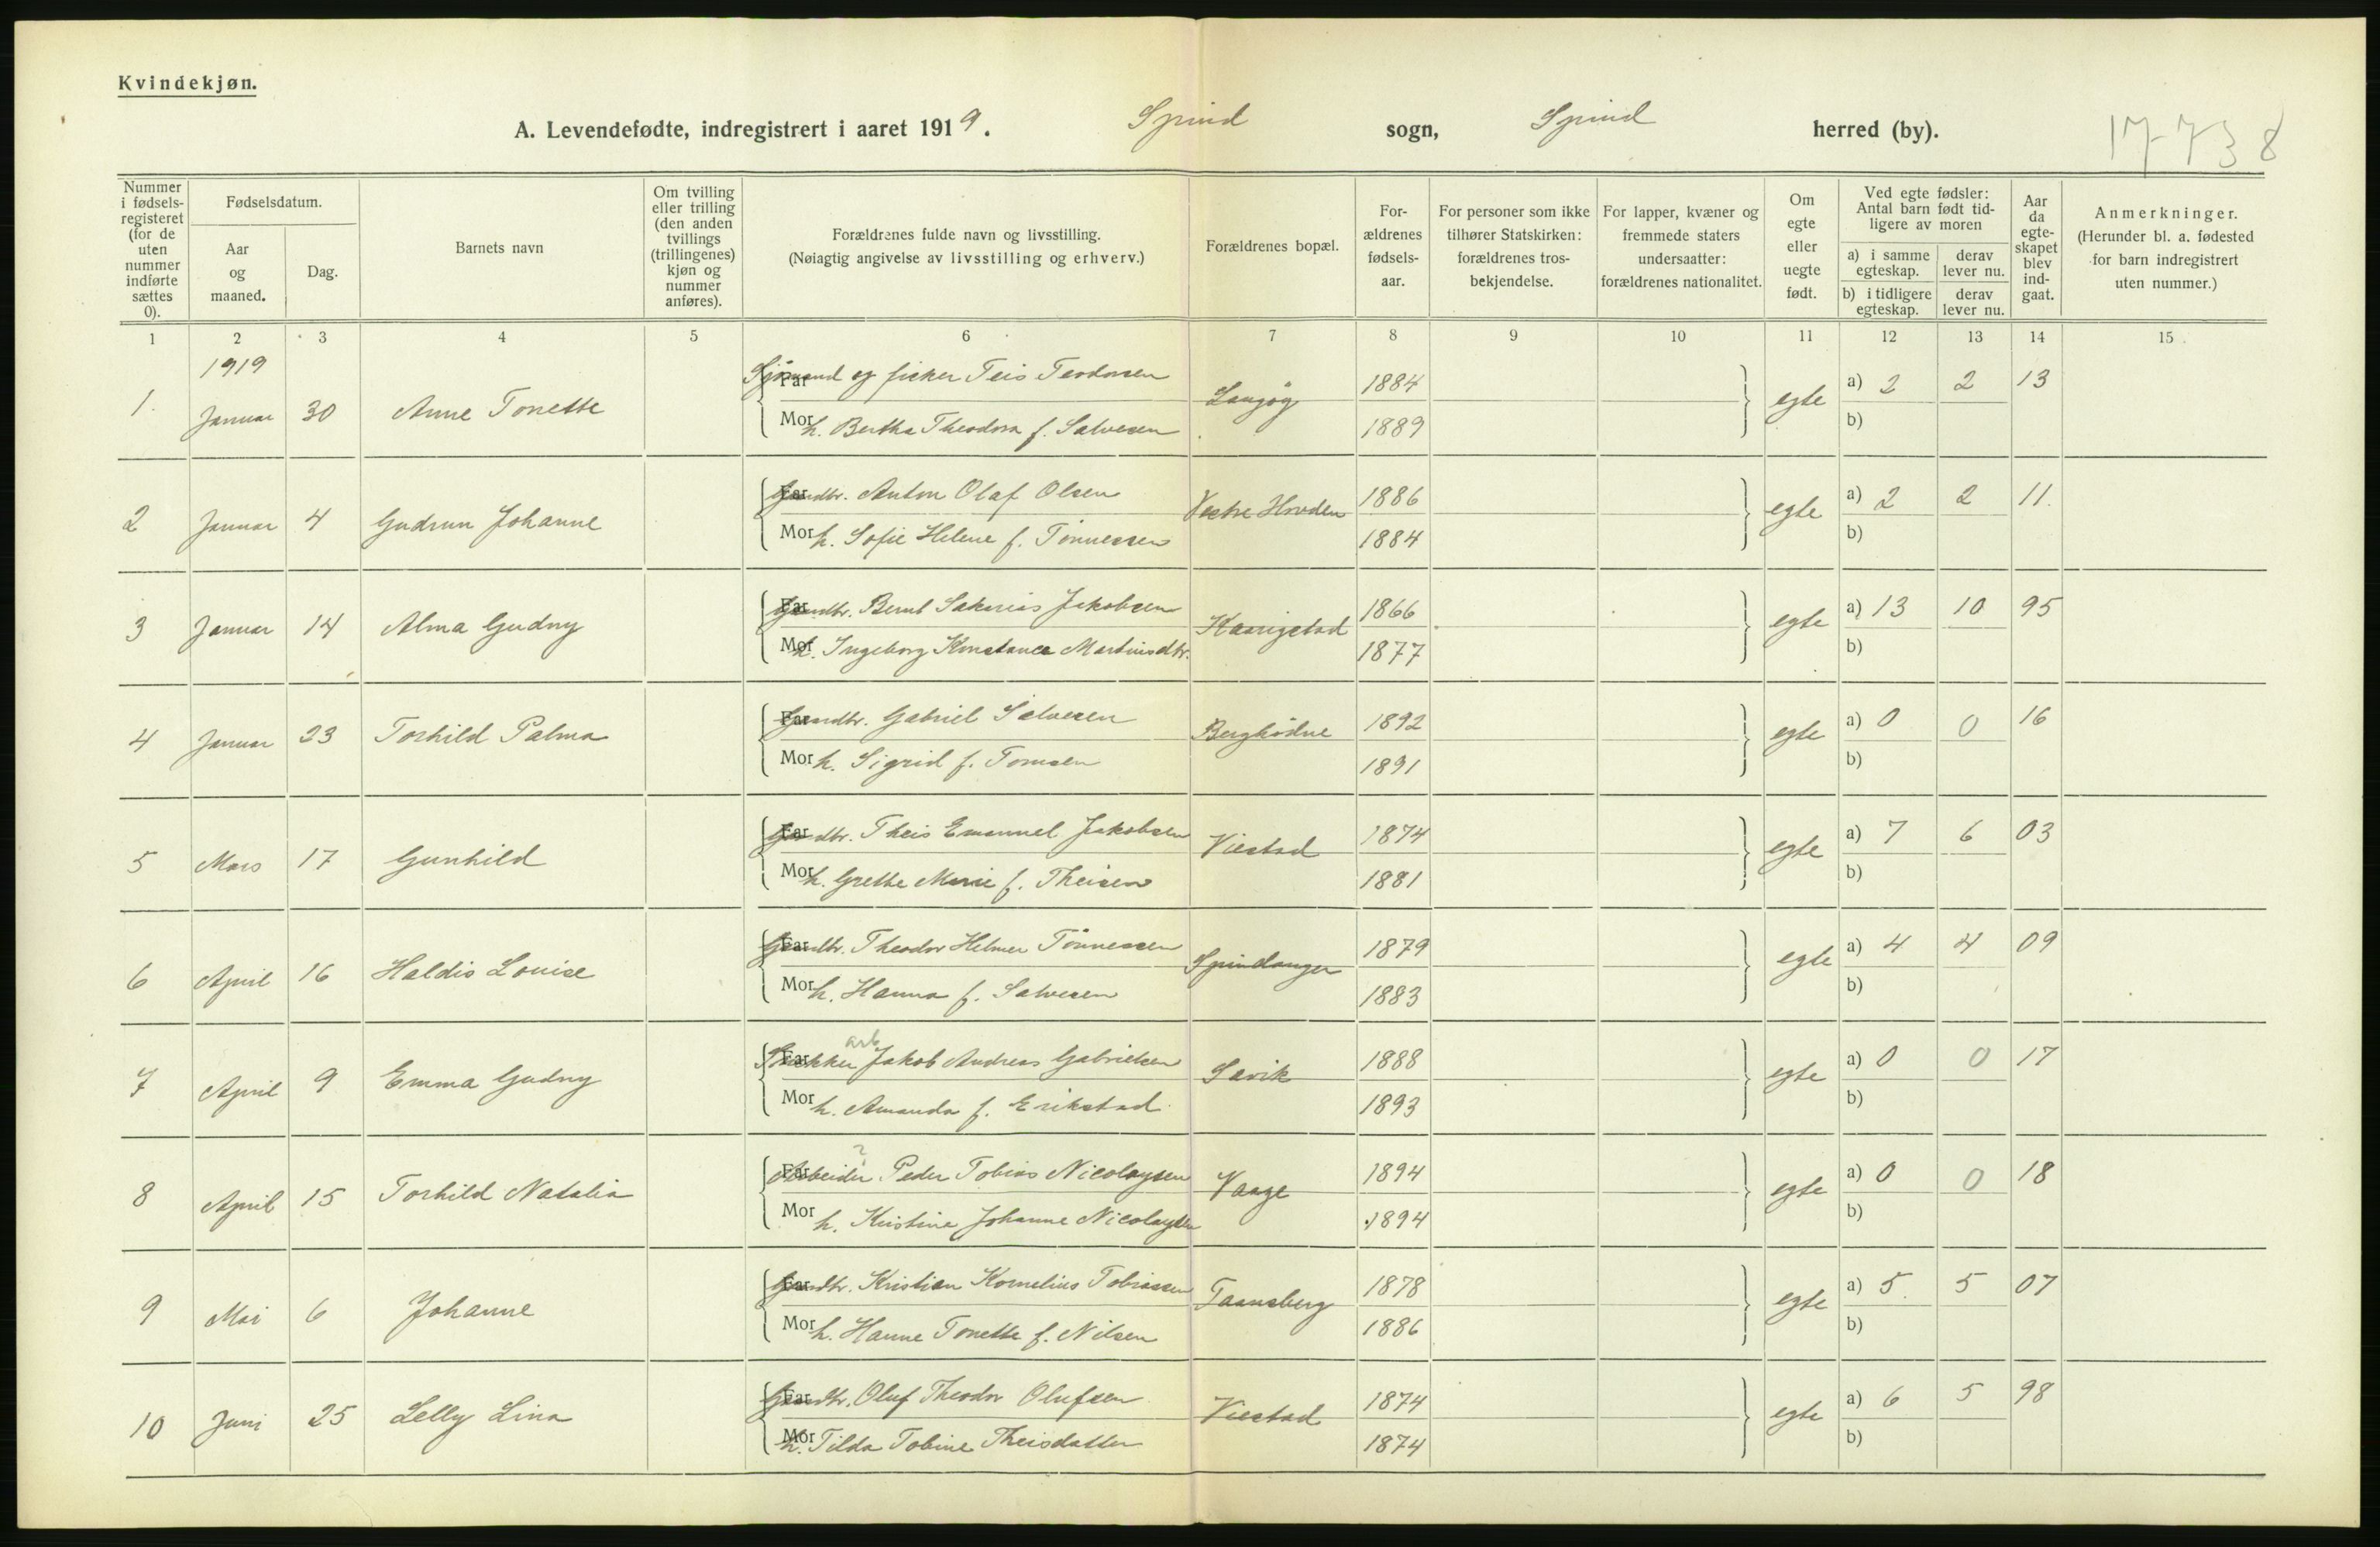 Kvindekjøn.
A. Levendefødte, indregistrert i aaret 1919. Spind sogn, Spind herred (by). 17-738
Nummer i fødselsregisteret (for de uten nummer indførte sættes 0).
Fødselsdatum.
Aar og maaned.
Dag.
Barnets navn
Om tvilling eller trilling (den anden tvillings (trillingenes) kjøn og nummer anføres).
Forældrenes fulde navn og livsstilling.
(Nøiagtig angivelse av livsstilling og erhverv.)
Forældrenes bopæl.
Forældrenes fødselsaar.
For personer som ikke tilhører Statskirken: forældrenes trosbekjendelse.
For lapper, kvæner og fremmede staters undersaatter: forældrenes nationalitet.
Om egte eller uegte født.
Ved egte fødsler: Antal barn født tidligere av moren
a) i samme egteskap. derav lever nu.
b) i tidligere egteskap. derav lever nu.
Aar da egteskapet blev indgaat.
Anmerkninger.
(Herunder bl. a. fødested for barn indregistrert uten nummer.)
1 2 3 4 5 6 7 8 9 10 11 12 13 14 15
1919
1. Januar 30 Anne Tonette Far Sjömand og fisker Teis Teodorsen Langög 1884 egte a) 2 2 13
Mor h. Bertha Theodora f. Salvesen 1889 b)
2 Januar 4 Gudrun Johanne Far Gaardbr. Anton Olaf Olsen Vestre Hovden 1886 egte a) 2 2 11.
Mor h. Sofie Helene f. Tönnessen 1884 b)
3 Januar 14 Alma Gudny Far Gaardbr. Bernt Sakarias Jakobsen Kaarigstad 1866 egte a) 13 10 95
Mor h. Ingeborg Konstance Martinsdtr. 1877 b)
4 Januar 23 Torhild Palma Far Gaardbr. Gabriel Salvesen 1892 egte a) 0 0 16
Mor h. Sigrid f. Tomsen 1891 b)
5 Mars 17 Gunhild Far Gaardbr. Theis Emanuel Jakobsen Viestad 1874 egte a) 7 6 03
Mor h. Grethe Marie f. Theisen 1881 b)
6 April 16 Haldis Louise Far Gaardbr. Theodor Helmer Tönnessen Spindanger 1879 egte a) 4 4 09
Mor h. Hanna f. Salvesen 1883 b)
arb
7 April 9 Emma Gudny Far Jakob Andreas Gabrielsen Savik 1888 egte a) 0 0 17
Mor h. Amanda f. Erikstad 1893 b)
?
8 April 15 Torhild Natalia Far Arbeider Peder Tobias Nicolaysen Vaage 1894 egte a) 0 0 18
Mor h. Kristine Johanne Nicolaysen 1894 b)
9 Mai 6 Johanne Far Gaardbr. Kristian Kornelius Tobiassen Taansberg 1878 egte a) 5. 5 07
Mor h. Hanne Tonette f. Nilsen 1886 b)
10 Juni 25 Lelly Lina Far Gaardbr. Oluf Theodor Olufsen Viestad 1874 egte a) 6 5 98
Mor h. Tilda Tobine Theisdatter 1874 b)